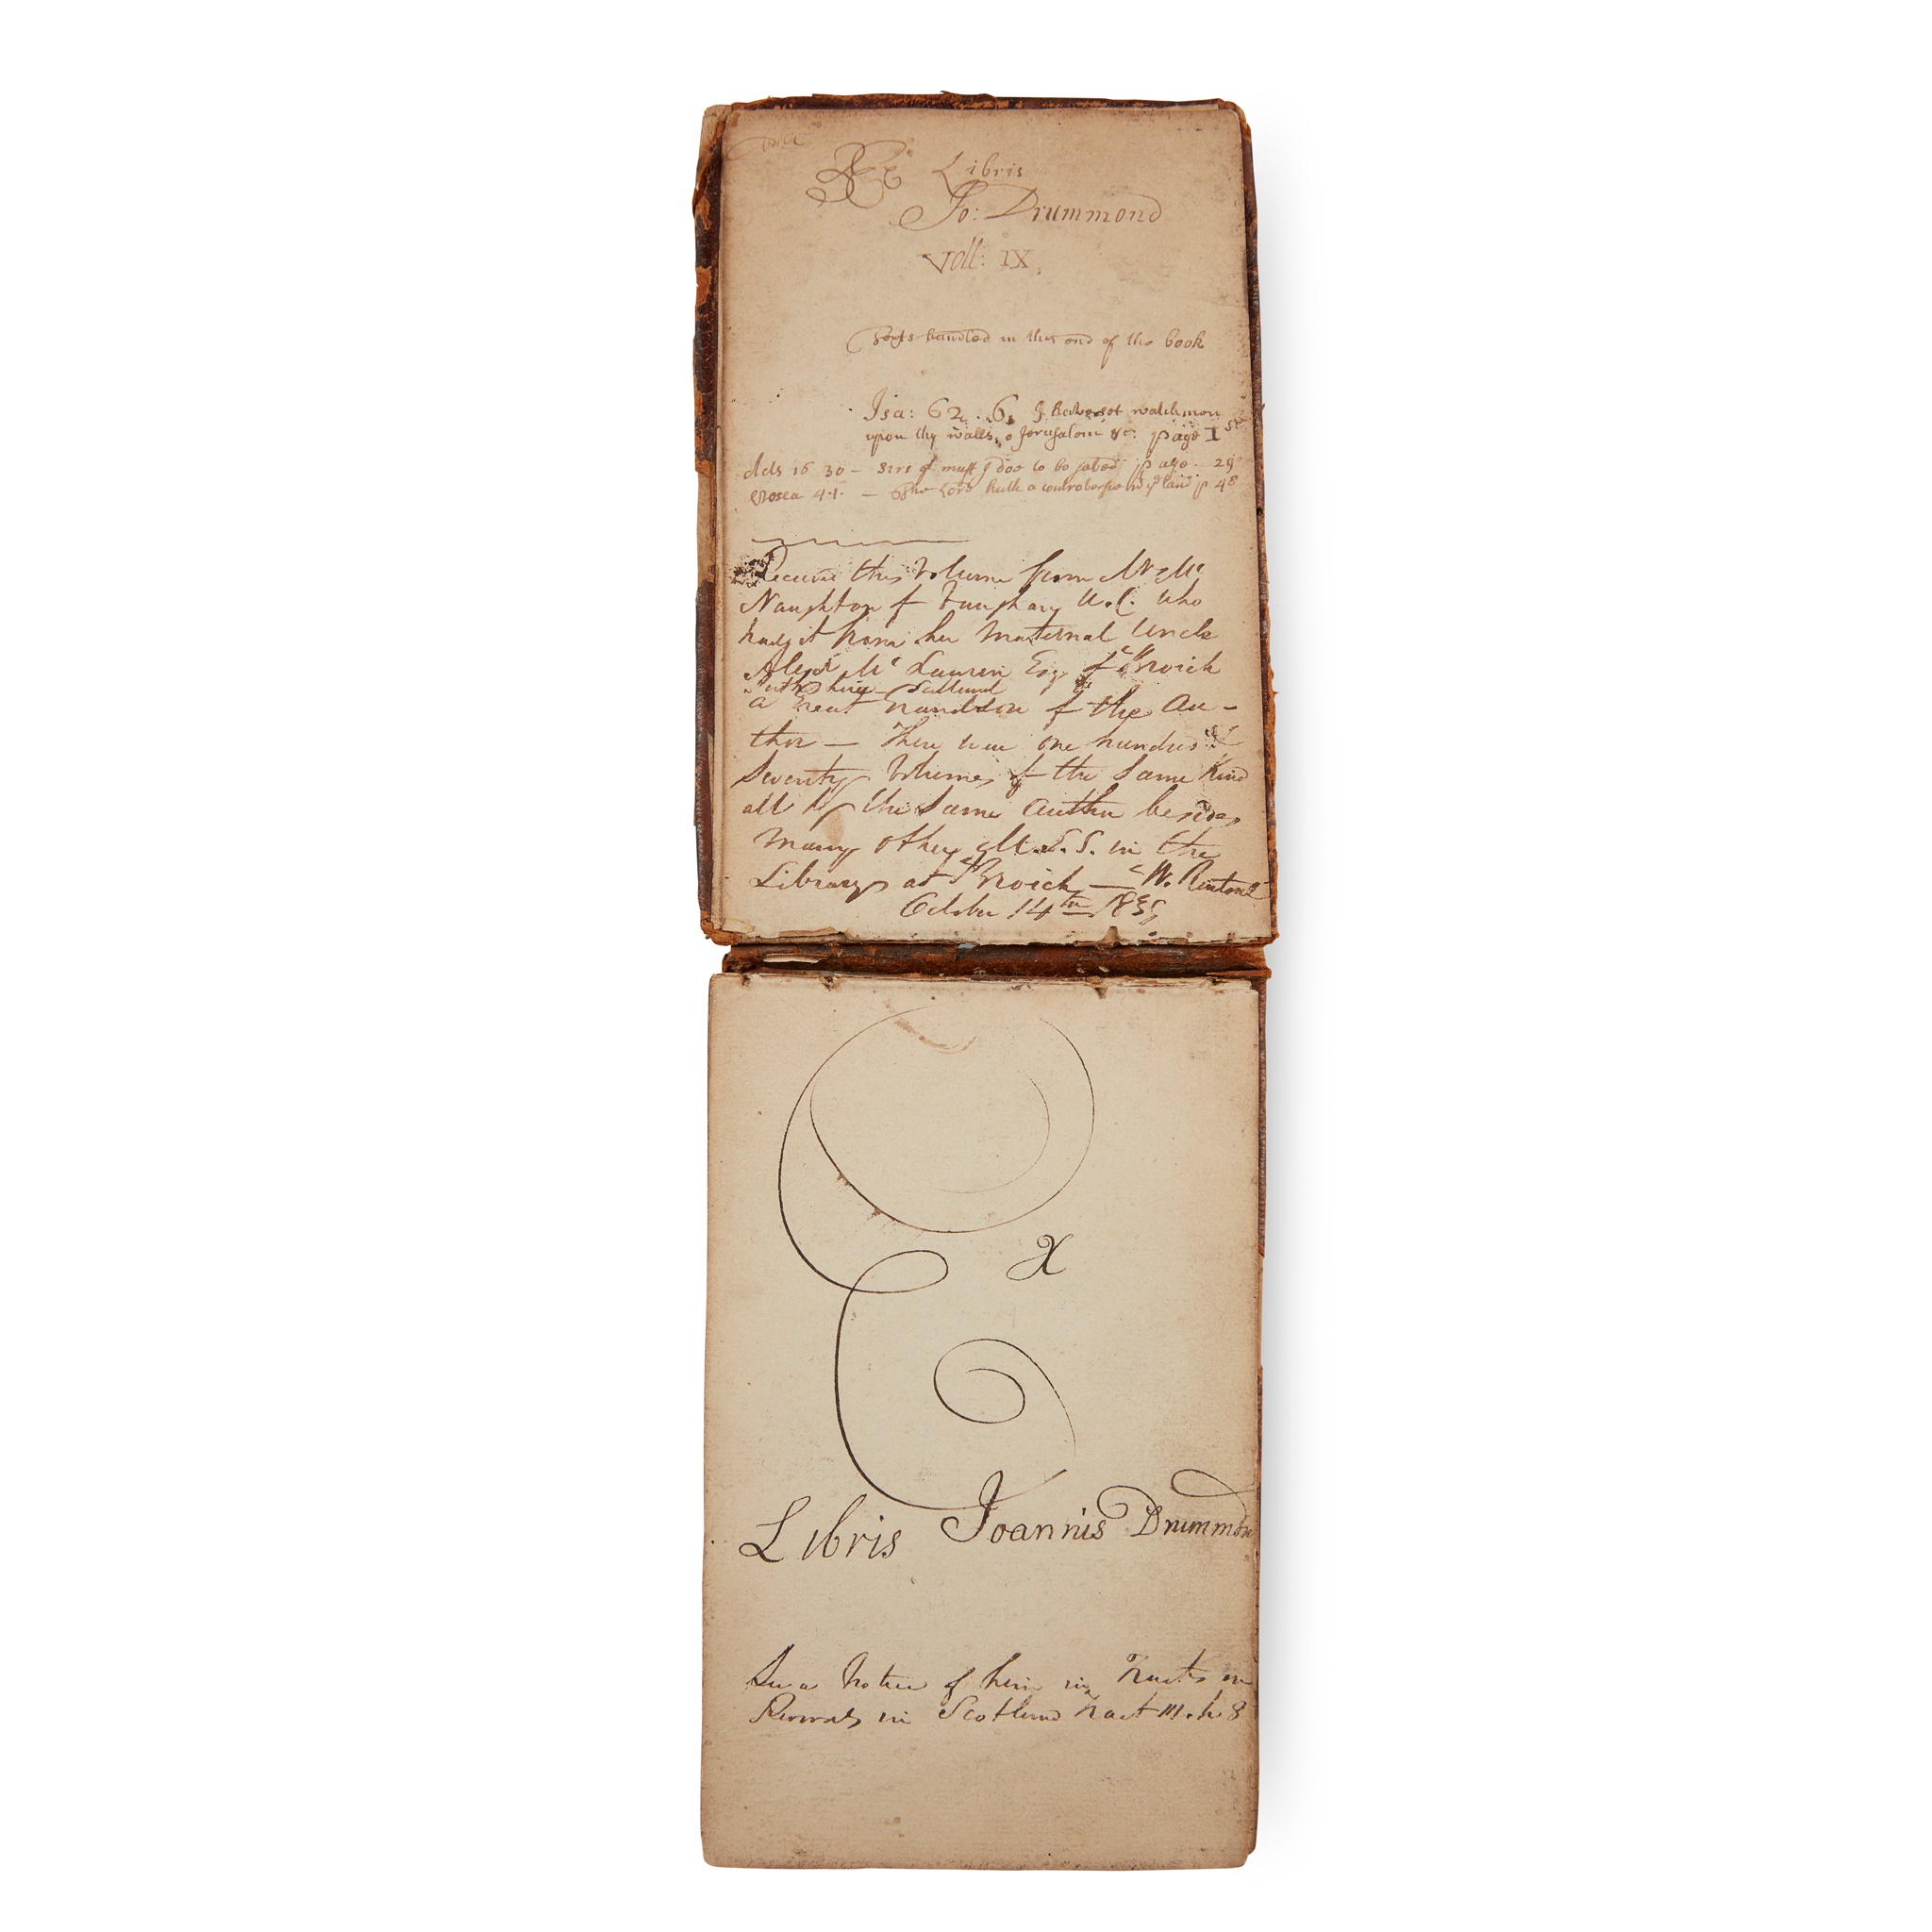 Ex Libris
Jo: Drummond
Voll: IX.
Texts handled in this end of the book
Isa: 62: 6, I have set watchmen
upon thy walls, o Jerusalem &c. page 1st
Acts 16 30 – Sirs qt must I doe to be saved page 29
Hosea 4.1. – The Lord hath a controversie wt ye land p 48
Received this Volume from Mrs Mc
Naughton of Vaughan U.C. who
had it from her Maternal Uncle
Alexr Mc Lauren Esq of Broich
Perthshire – Scotland
a Great Grandson of the Au-
thor — There were one hundred &
Seventy Volumes of the Same Kind
all by the Same author besides
Many other M.S.S. in the
Library at Broich — W. Rintoul
October 14th
Ex
Libris Joannis Drummon
See a Notice of him in Tracts on
Revivals in Scotland Tract III. 8